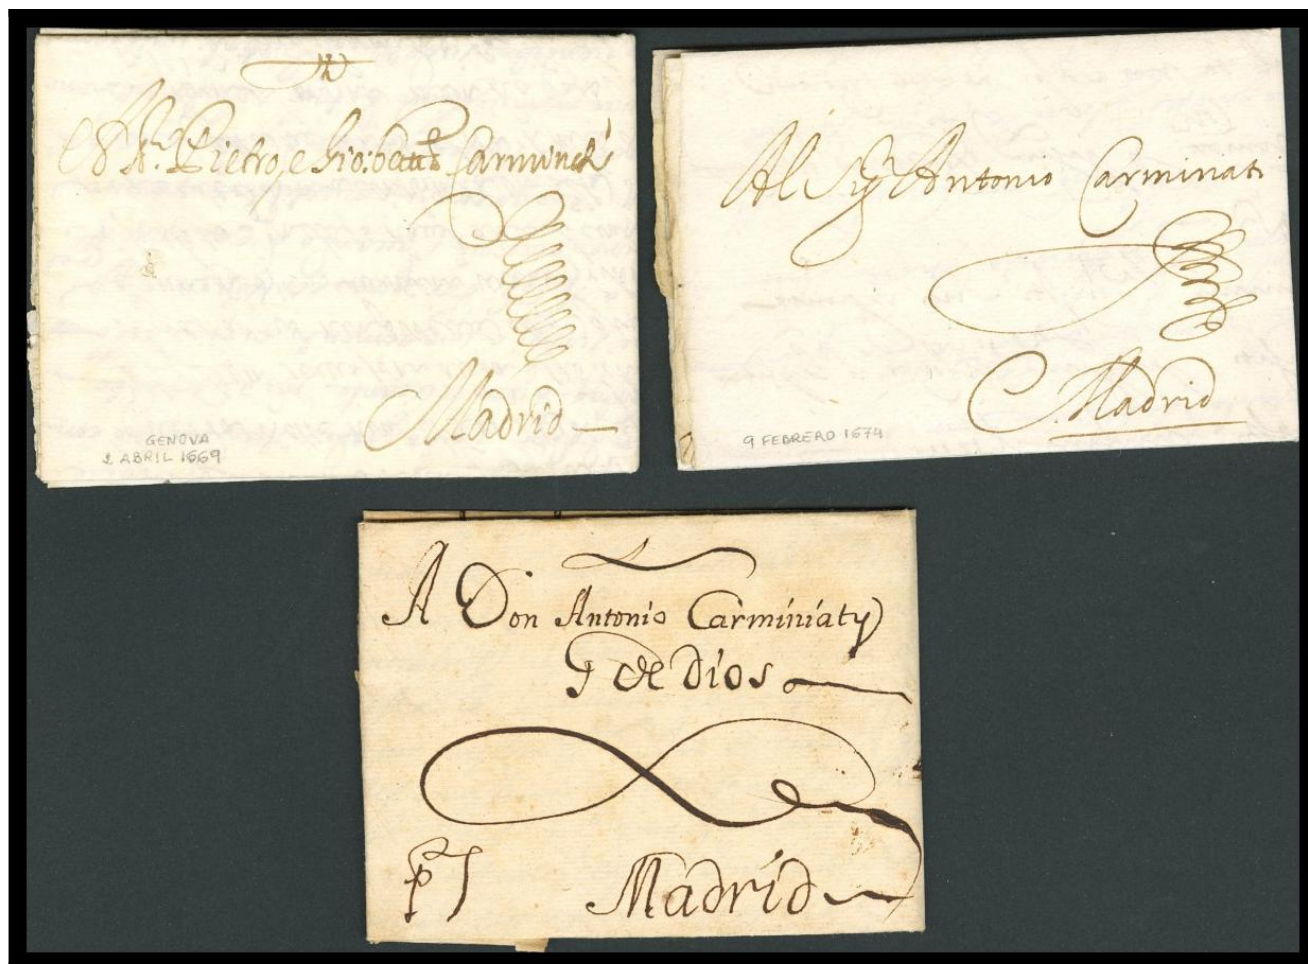 Pietro, e Gio: Batta Carminati
Madrid
GENOVA
2 ABRIL 1669
Al Sig Antonio Carminati
Madrid
9 FEBRERO 1674
A Don Antonio Carminiaty
G de Dios
Madrid